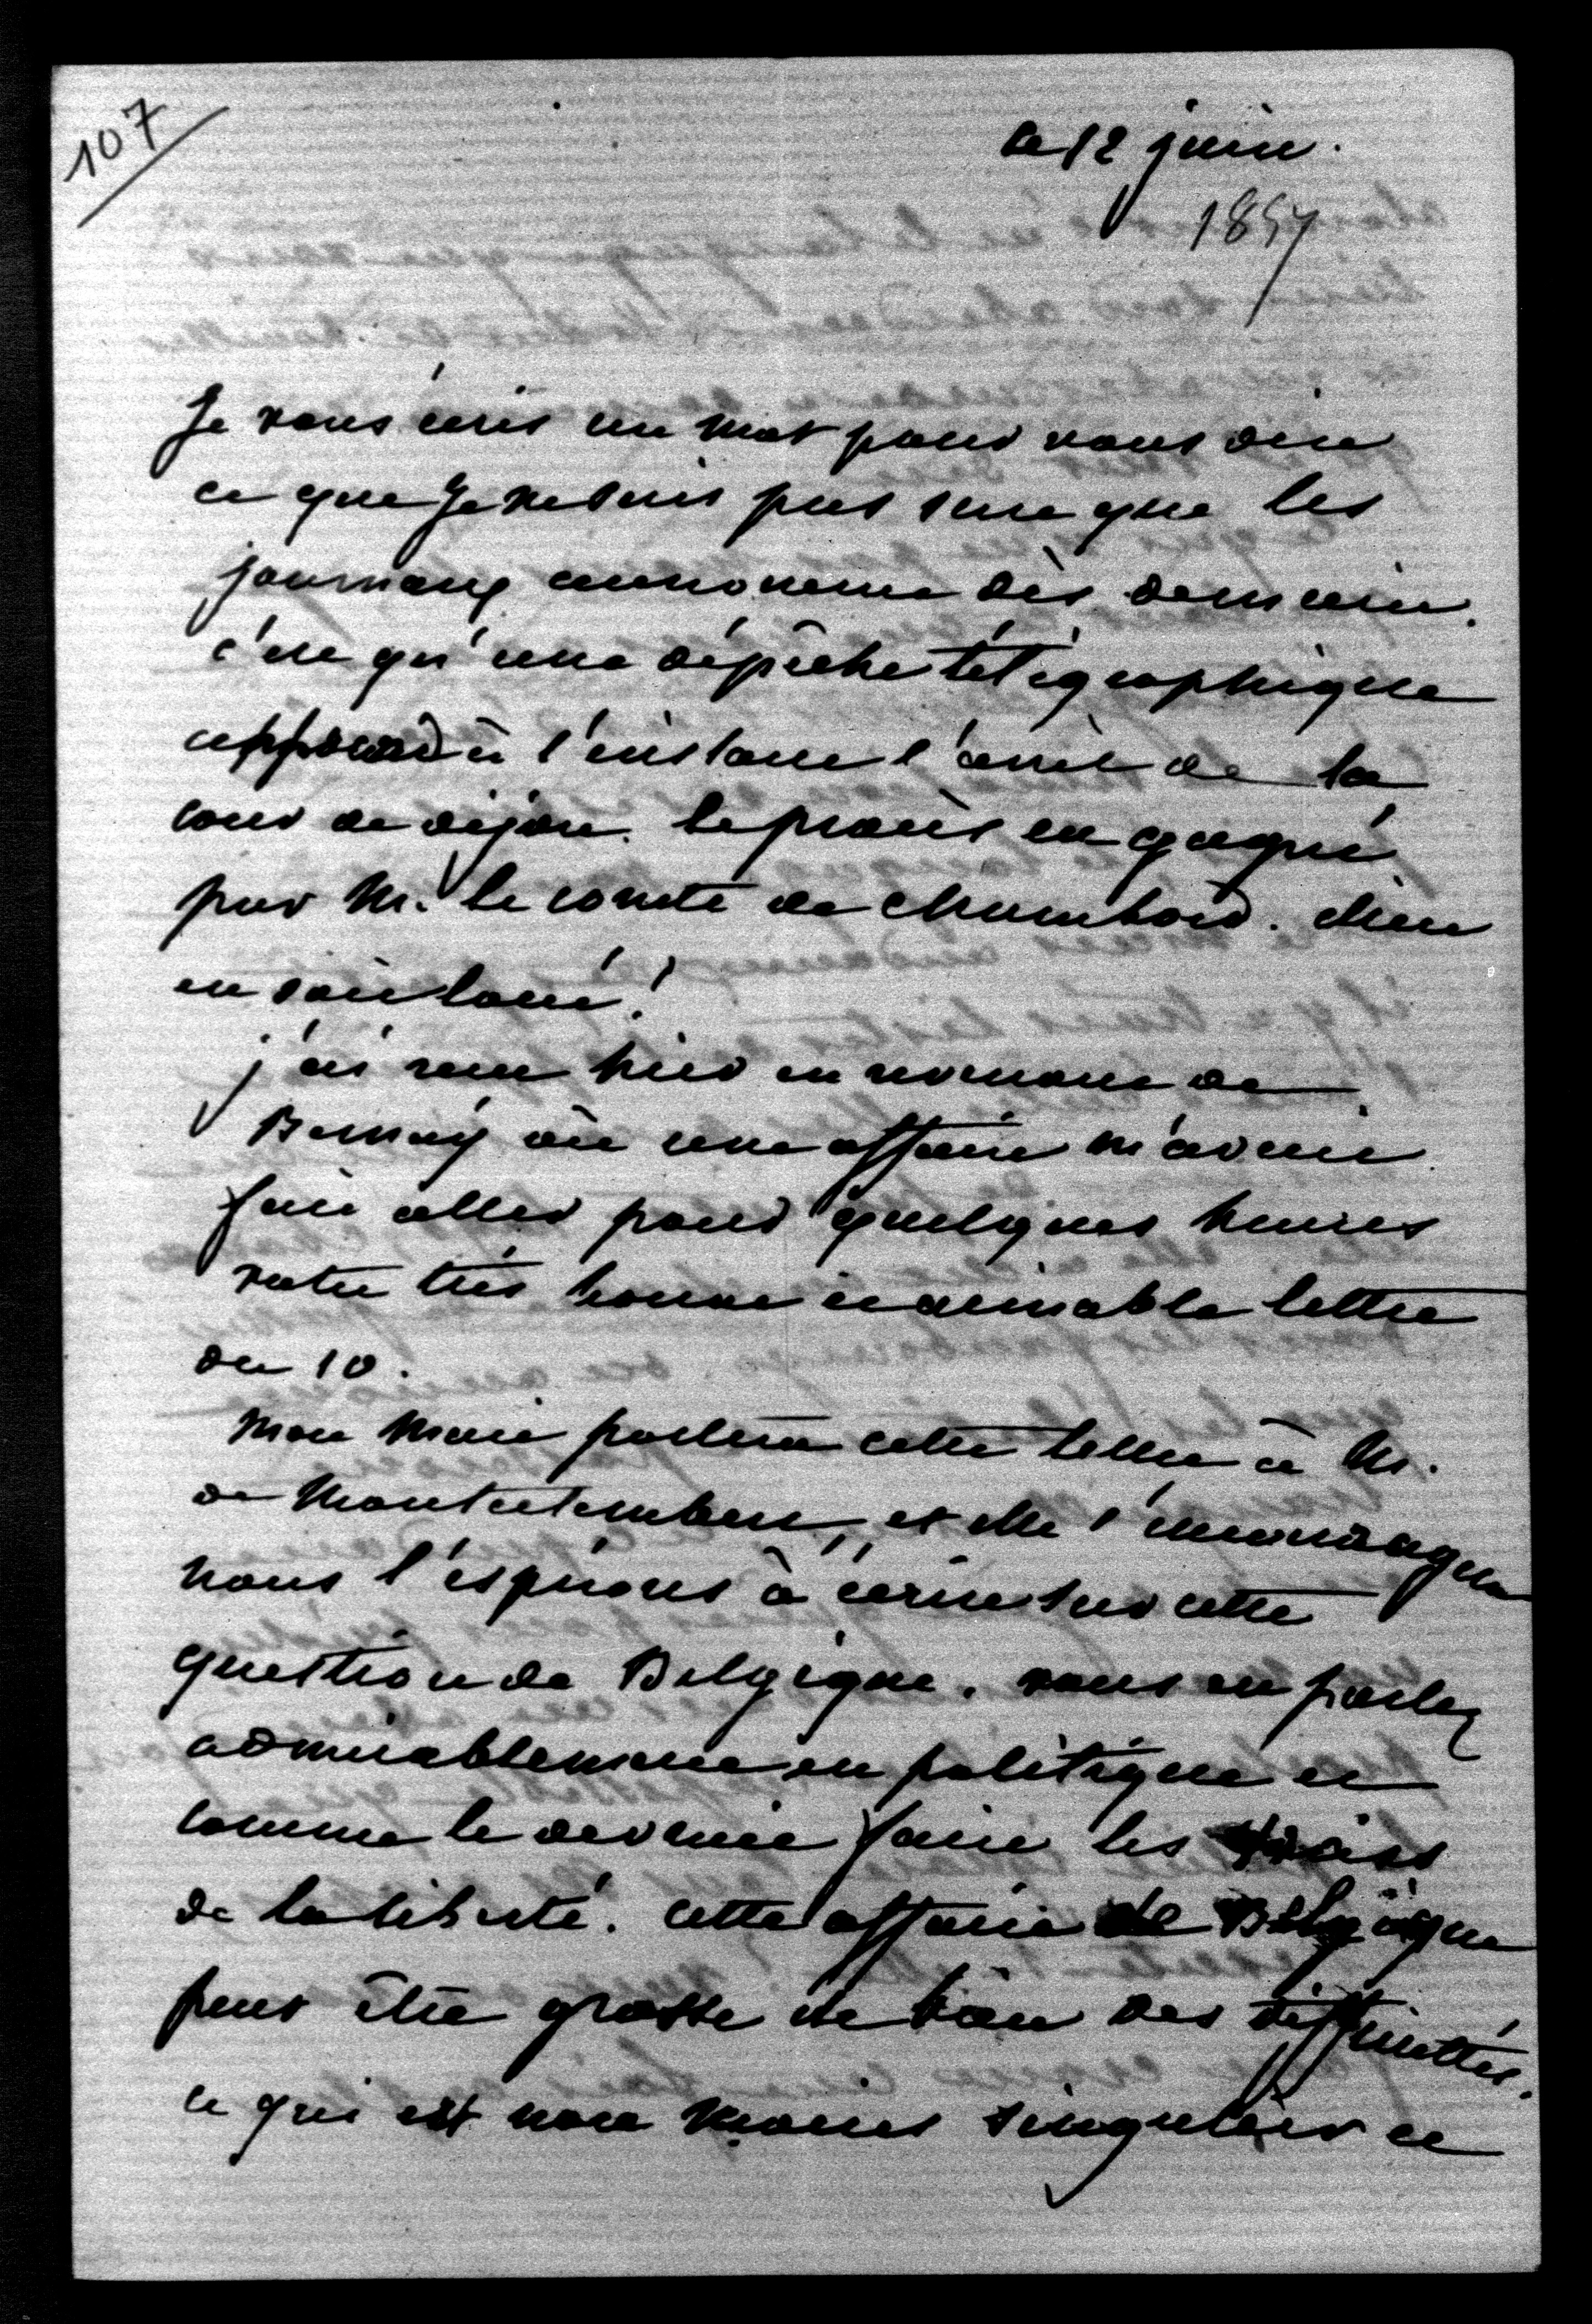 107
le 12 juin.
1857
Je vous écris un mot pour vous dire
ce que je ne suis pas sure que les
journaux annoncent dès demain.
c'est qu'une dépêche télégraphique
apprend à l'instant l'arrêt de la
cour de dijon. le procès est gagné
par M. le comte de chambord. dieu
en soit loué!
j'ai reçu hier en revenant de
Bernay où une affaire m'avait
fait aller pour quelques heures
votre très bonne et aimable lettre
du 10.
Mon mari portera cette lettre à M.
de Montalembert, et elle l'encouragera
nous l'espérons à écrire sur cette
question de Belgique. vous en parlez
admirablement en politique et
comme le devraient faire les
de la liberté. cette affaire de Belgique
peut être grosse de bien des difficultés.
ce qui est non moins singulier et